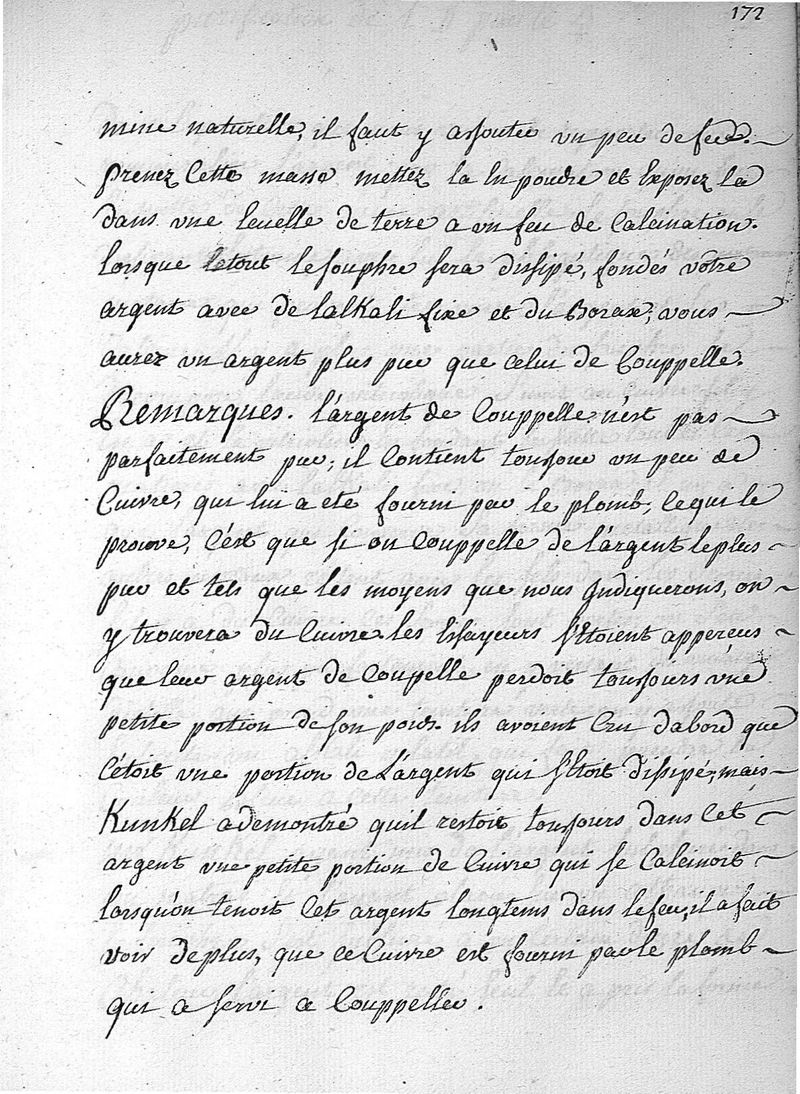 172
mine naturelle, il faut y ajouter un peu de feu.
prenez cette masse mettez la en poudre et exposez la
dans une ecuelle de terre a un feu de calcination.
lorsque le souphre sera dissipé, fondés votre
argent avec de lalkali fixe et du Borax, vous
aurez un argent plus pur que celui de Couppelle.
Remarques. l'argent de Couppelle n'est pas
parfaitement pur, il contient toujour un peu de
Cuivre, qui lui a eté fourni par le plomb, ce qui le
prouve, c'est que si on Couppelle de l'argent le plus
pur et tels que les moyens que nous Indiquerons, on
y trouvera du Cuivre. les Essayeurs s'étoient apperçus
que leur argent de Coupelle perdoit toujours une
petite portion de son poids. ils avoient cru dabord que
c'étoit une portion de L'argent qui s'étoit dissipé, mais
Kunkel a demontré quil restoit toujours dans cet
argent une petite portion de Cuivre qui se Calcinoit
lorsqu'on tenoit cet argent longtems dans le feu, il a fait
voir de plus, que ce Cuivre est fourni par le plomb
qui a servi a Couppeller.